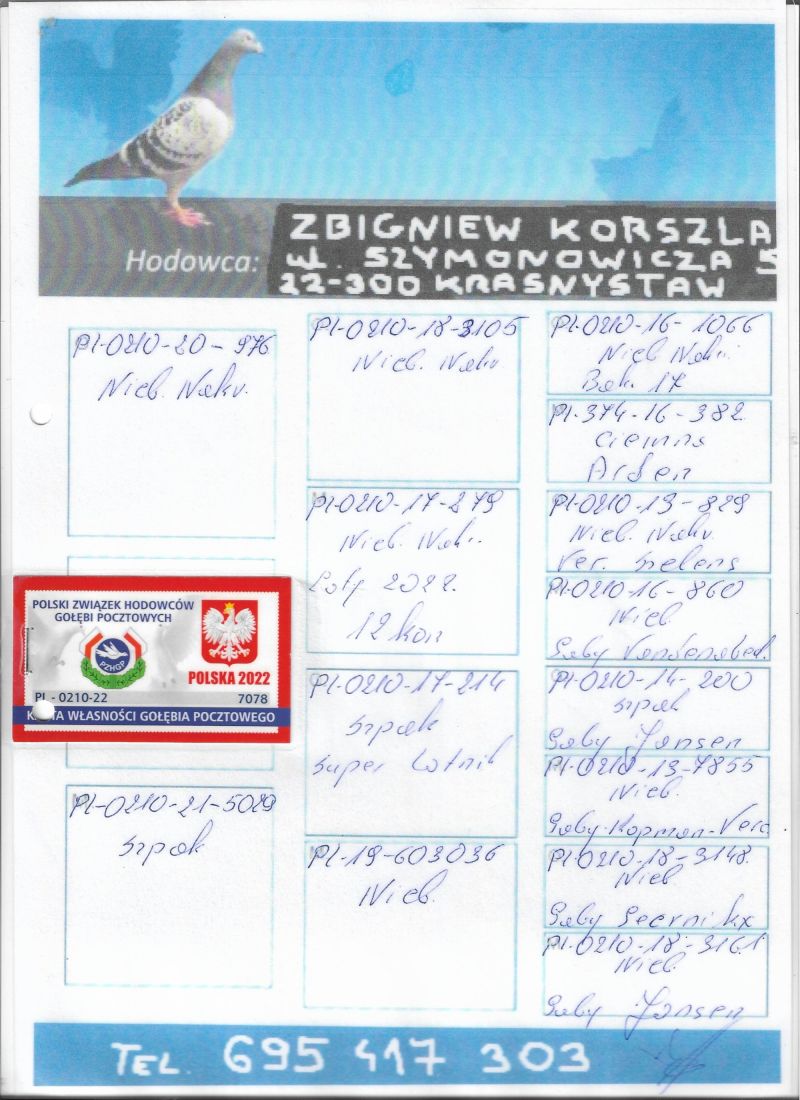 Hodowca:
ZBIGNIEW KORSZLA
ul. SZYMONOWICZA 5
22-300 KRASNYSTAW
Pl-0210-20-976
Nieb. Nakr.
POLSKI ZWIĄZEK HODOWCÓW
GOŁĘBI POCZTOWYCH
PZHGP
POLSKA 2022
PL - 0210-22 7078
KARTA WŁASNOŚCI GOŁĘBIA POCZTOWEGO
Pl-0210-21-5029
Szpak
Pl-0210-18-3105
Nieb. Nakr
Pl-0210-17-279
Nieb. Nakr.
Loty 2022.
12 kon
Pl-0210-17-214
Szpak
Super Lotnik
Pl-19-603036
Nieb.
Pl-0210-16-1066
Nieb Nakr.
Bak. 17
Pl-374-16-382
Ciemna
Arden
Pl-0210-13-829
Nieb. Nakr.
Ver.
Pl-0210-16-860
Nieb.
Gaby Vandenabeel.
Pl-0210-14-200
Szpak
Gaby Jansen
Pl-0210-13-7855
Nieb.
Gaby-Kopman-Verc
Pl-0210-18-3148.
Nieb
Gaby
Pl-0210-18-3161
Nieb.
Gaby Jansen
TEL. 695 417 303